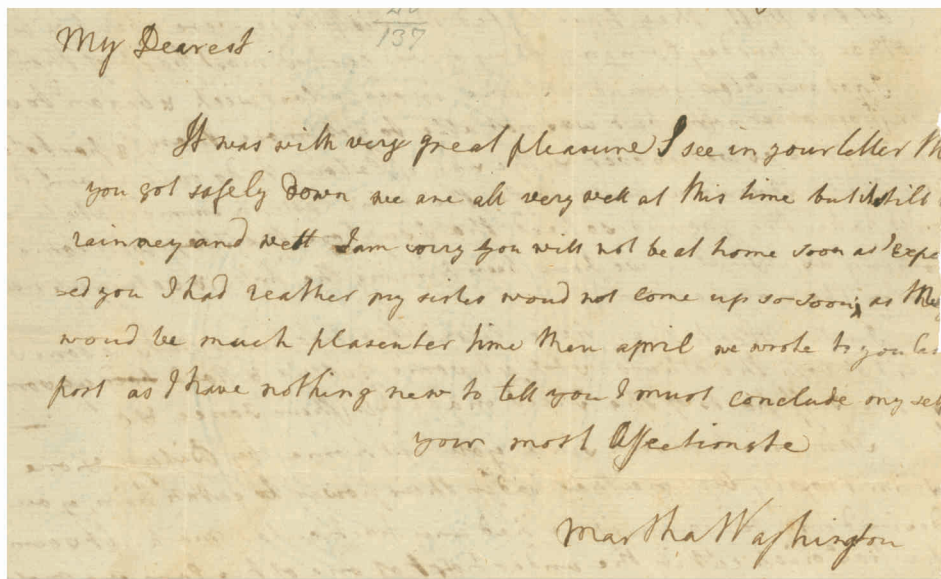 137
My Dearest
It was with very great pleasure I see in your letter th
you got safely down we are all very well at this time but it still
rainney and wett I am sorry you will not be at home soon as I expe
sed you I had reather my sister woud not come up so soon, as May
woud be much plasenter time then april we wrote to you las
port as I have nothing new to tell you I must conclude my sel
your most Affectionate
Martha Washington